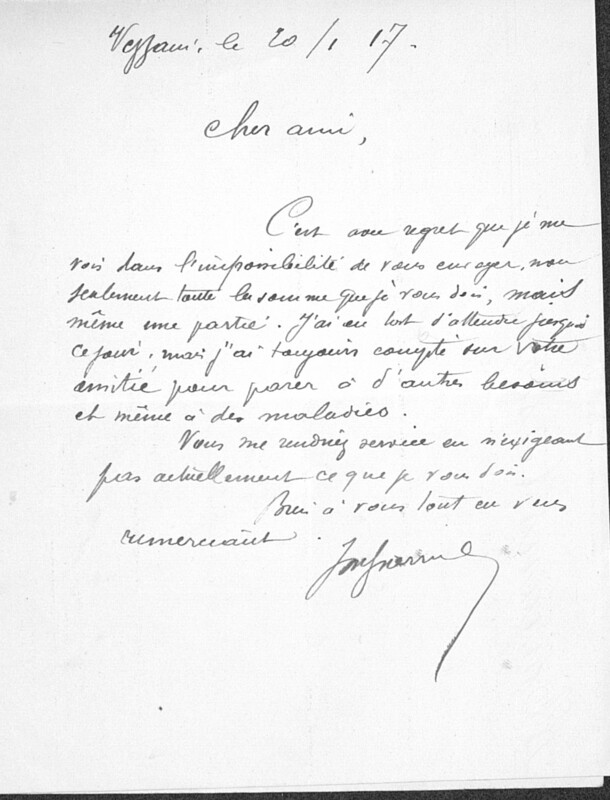 Vezzani, le 20/1 17.
Cher ami,
C'est avec regret que je me
vois dans l'impossibilité de vous envoyer, non
seulement toute la somme que je vous dois, mais
même une partie. J'ai eu tort d'attendre jusqu'à
ce jour, mais j'ai toujours compté sur votre
amitié pour parer à d'autres besoins
et même à des maladies.
Vous me rendriez service en n'exigeant
pas actuellement ce que je vous dois.
Bien à vous tout en vous
remerciant.